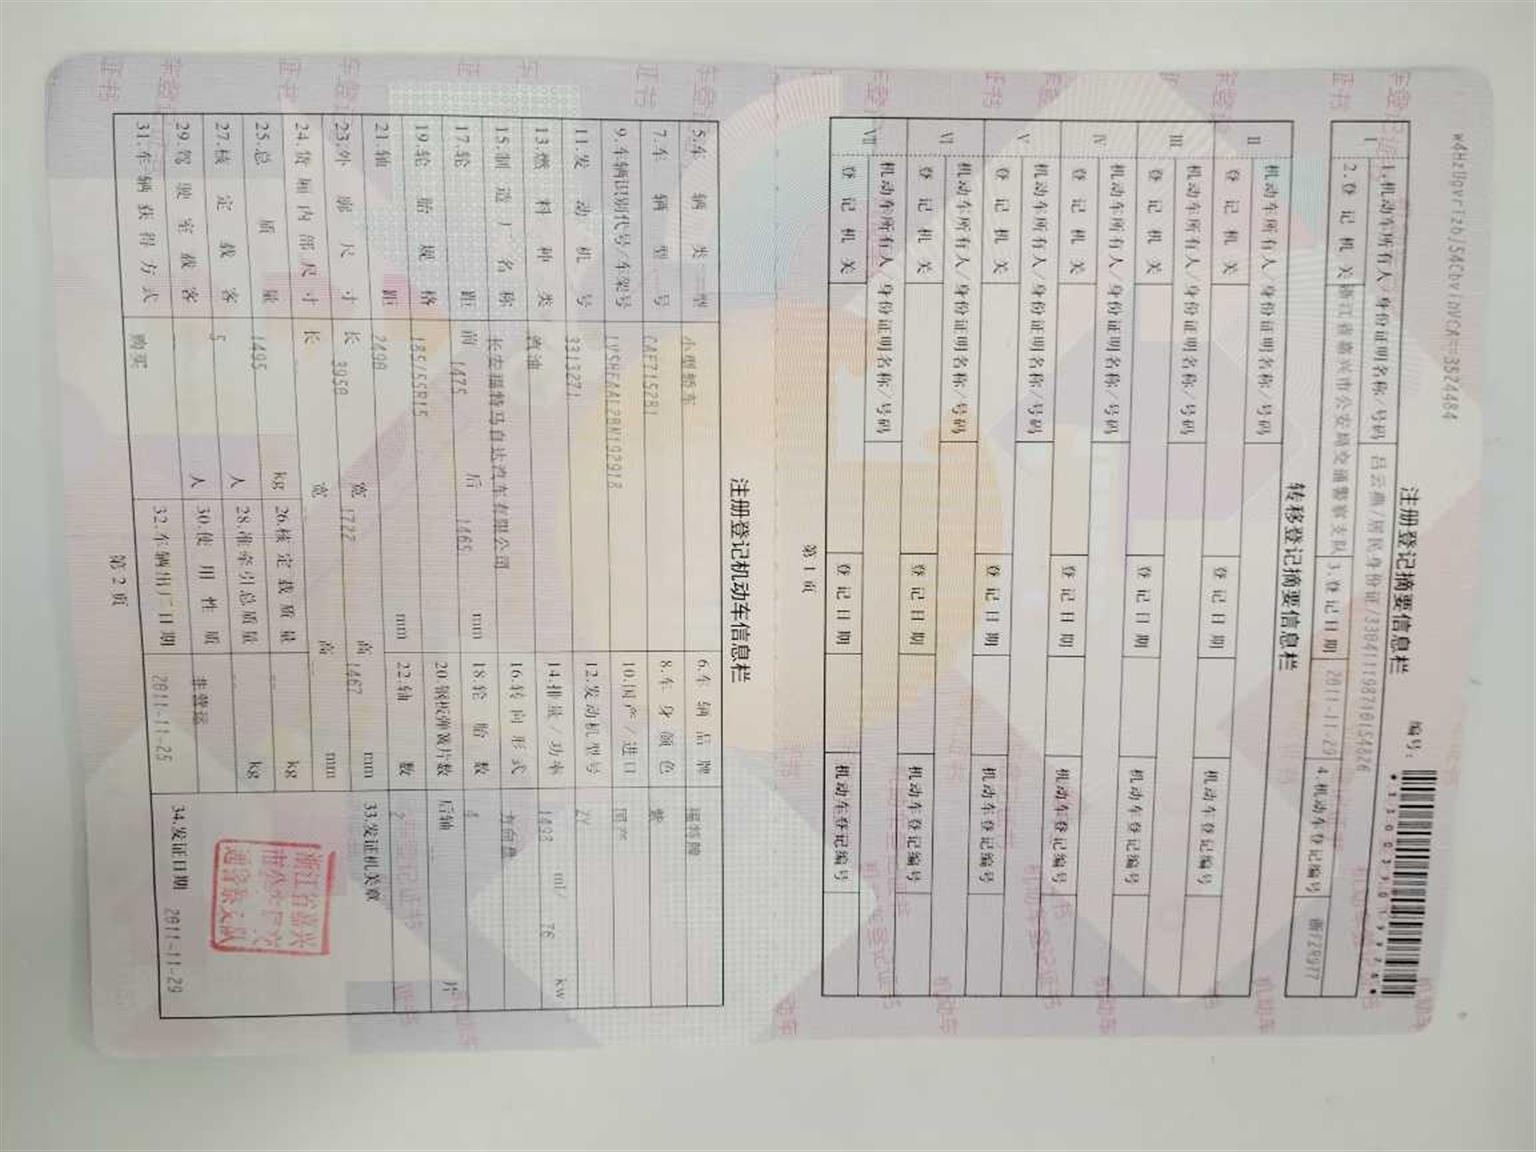 w4HzUgvrTzb/S4CbvibVCA==3524484
注册登记摘要信息栏
编号:
I 1.机动车所有人/身份证明名称/号码 吕云燕/居民身份证/330411198710154826
2.登记机关 浙江省嘉兴市公安局交通警察支队 3.登记日期 2011-11-29 4.机动车登记编号 浙F28977
转移登记摘要信息栏
II 机动车所有人/身份证明名称/号码
登记机关 登记日期 机动车登记编号
III 机动车所有人/身份证明名称/号码
登记机关 登记日期 机动车登记编号
IV 机动车所有人/身份证明名称/号码
登记机关 登记日期 机动车登记编号
V 机动车所有人/身份证明名称/号码
登记机关 登记日期 机动车登记编号
VI 机动车所有人/身份证明名称/号码
登记机关 登记日期 机动车登记编号
VII 机动车所有人/身份证明名称/号码
登记机关 登记日期 机动车登记编号
第1页
注册登记机动车信息栏
5.车辆类型 小型轿车 6.车辆品牌 福特牌
7.车辆型号 CAF7152B1 8.车身颜色 紫
9.车辆识别代号/车架号 LVSHFAAL2BN192918 10.国产/进口 国产
11.发动机号 331327L 12.发动机型号 ZY
13.燃料种类 汽油 14.排量/功率 1498 ml/ 76 kw
15.制造厂名称 长安福特马自达汽车有限公司 16.转向形式 方向盘
17.轮距 前 1475 后 1465 mm 18.轮胎数 4
19.轮胎规格 185/55R15 20.钢板弹簧片数 后轴 片
21.轴距 2490 mm 22.轴数 2
23.外廓尺寸 长 3950 宽 1722 高 1467 mm 33.发证机关章
24.货厢内部尺寸 长 宽 高 mm
25.总质量 1495 kg 26.核定载质量 -- kg
27.核定载客 5 人 28.准牵引总质量 -- kg
29.驾驶室载客 人 30.使用性质 非营运
31.车辆获得方式 购买 32.车辆出厂日期 2011-11-25 34.发证日期 2011-11-29
浙江省嘉兴
市公安局交
通警察支队
第2页